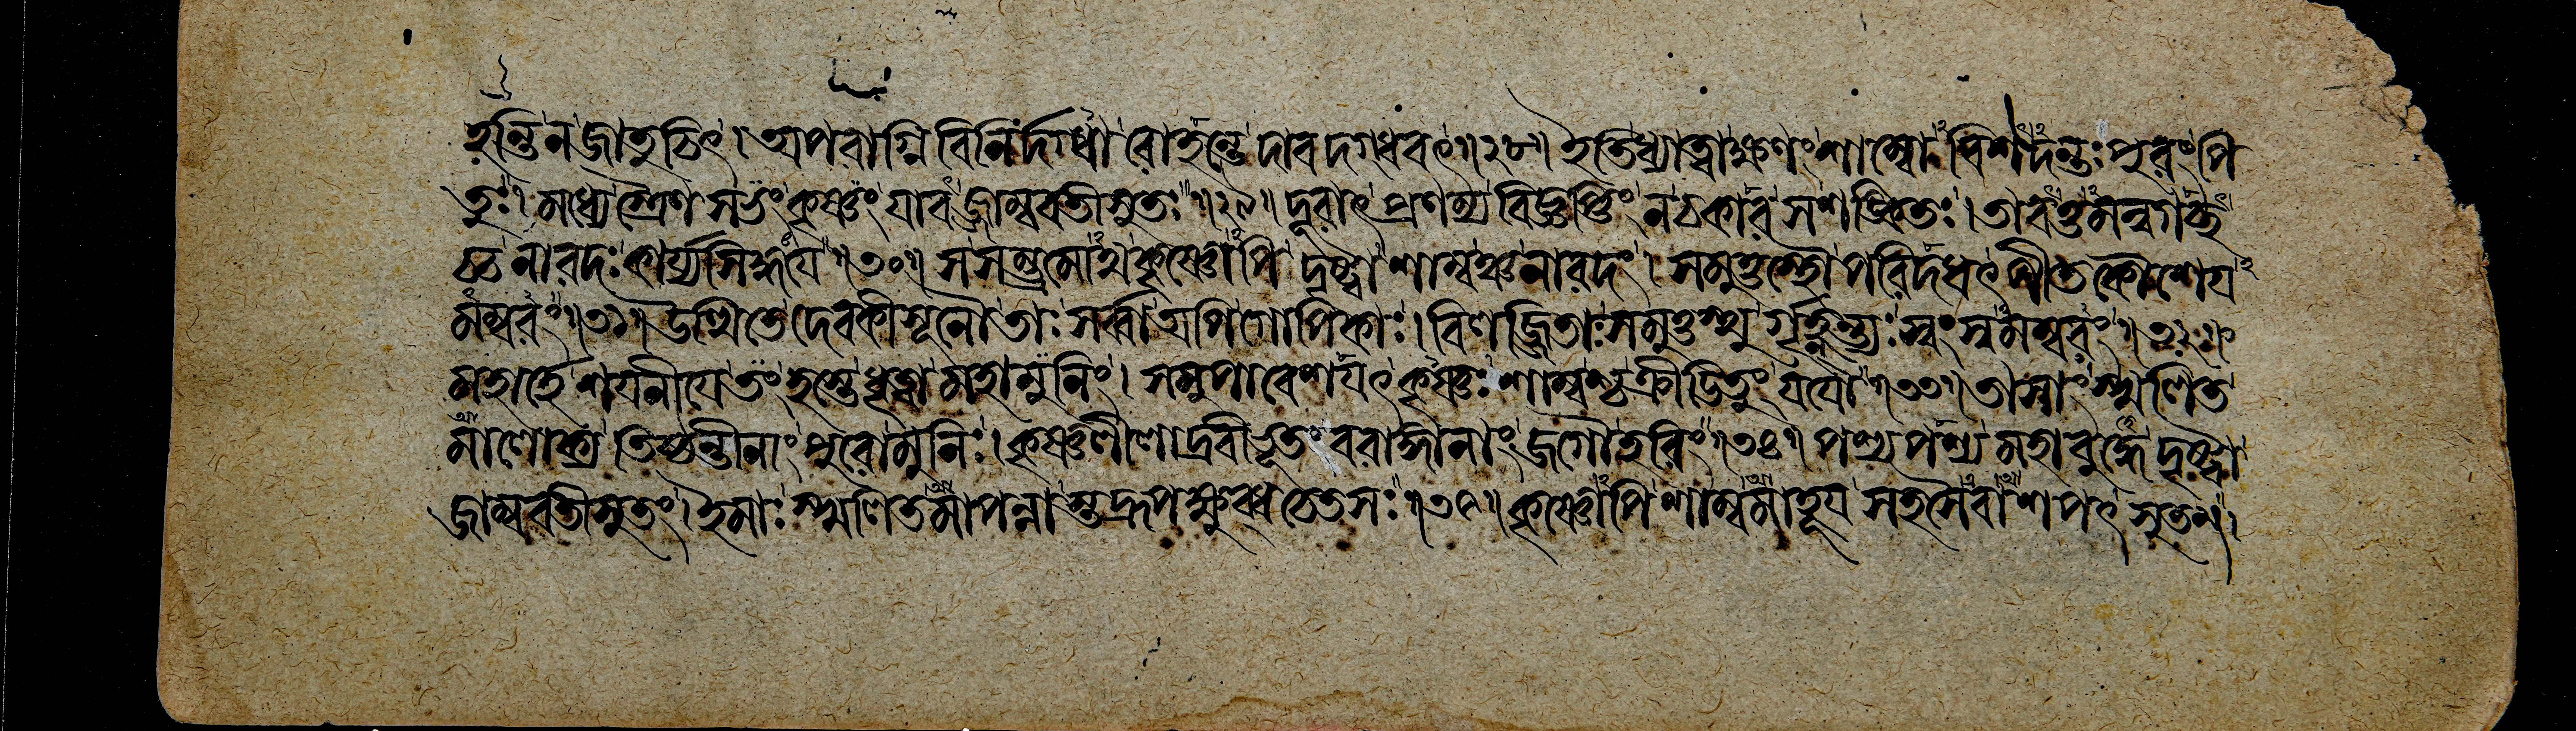 হন্তি ন জাতুচিৎ । অপবাগ্নিবিনির্দগ্ধা রোহন্তে দাবদগ্ধবৎ ॥২৮॥ ইতি ধ্যাত্বা ক্ষণং শাম্বো বিশদন্তঃপুরং পি
তুঃ । মধ্যেস্ত্রৈণসভং কৃষ্ণং যাবজ্জাম্ববতীসুতঃ ॥২৯॥ দূরাৎ প্রণম্য বিজ্ঞপ্তিং ন চকার সশঙ্কিতঃ । তাবত্তমন্বগাত্তূ
র্ণং নারদঃ কার্য্যসিদ্ধয়ে ॥৩০॥ সসম্ভ্রমোথ কৃষ্ণোপি দৃষ্ট্বা শাম্বঞ্চ নারদং । সমুত্তস্থৌ পরিদধৎ পীতকৌশেয়
মম্বরং ॥৩১॥ উত্থিতে দেবকীসূনৌ তাঃ সর্ব্বা অপি গোপিকাঃ । বিলজ্জিতাঃ সমুত্তস্থু র্গৃহ্নন্ত্যঃ স্বং স্বমম্বরং ॥৩২॥
মহার্হশয়নীয়ে তং হস্তে ধৃত্বা মহামুনিং । সমুপাবেশয়ৎ কৃষ্ণঃ শাম্বশ্চ ক্রীড়িতুং যযৌ ॥৩৩॥ তাসাং স্খলিত
মালোক্য তিষ্ঠন্তীনাং পুরো মুনিঃ । কৃষ্ণলীলাদ্রবীভূত বরাঙ্গানাং জগৌ হরিং ॥৩৪॥ পশ্য পশ্য মহাবুদ্ধে দৃষ্ট্বা
জাম্ববতীসুতং । ইমাঃ স্খলিতমাপন্না স্তদ্রূপক্ষুব্ধচেতসঃ ॥৩৫॥ কৃষ্ণোপি শাম্বমাহূয় সহসৈবাশপৎ সুতম্ ।